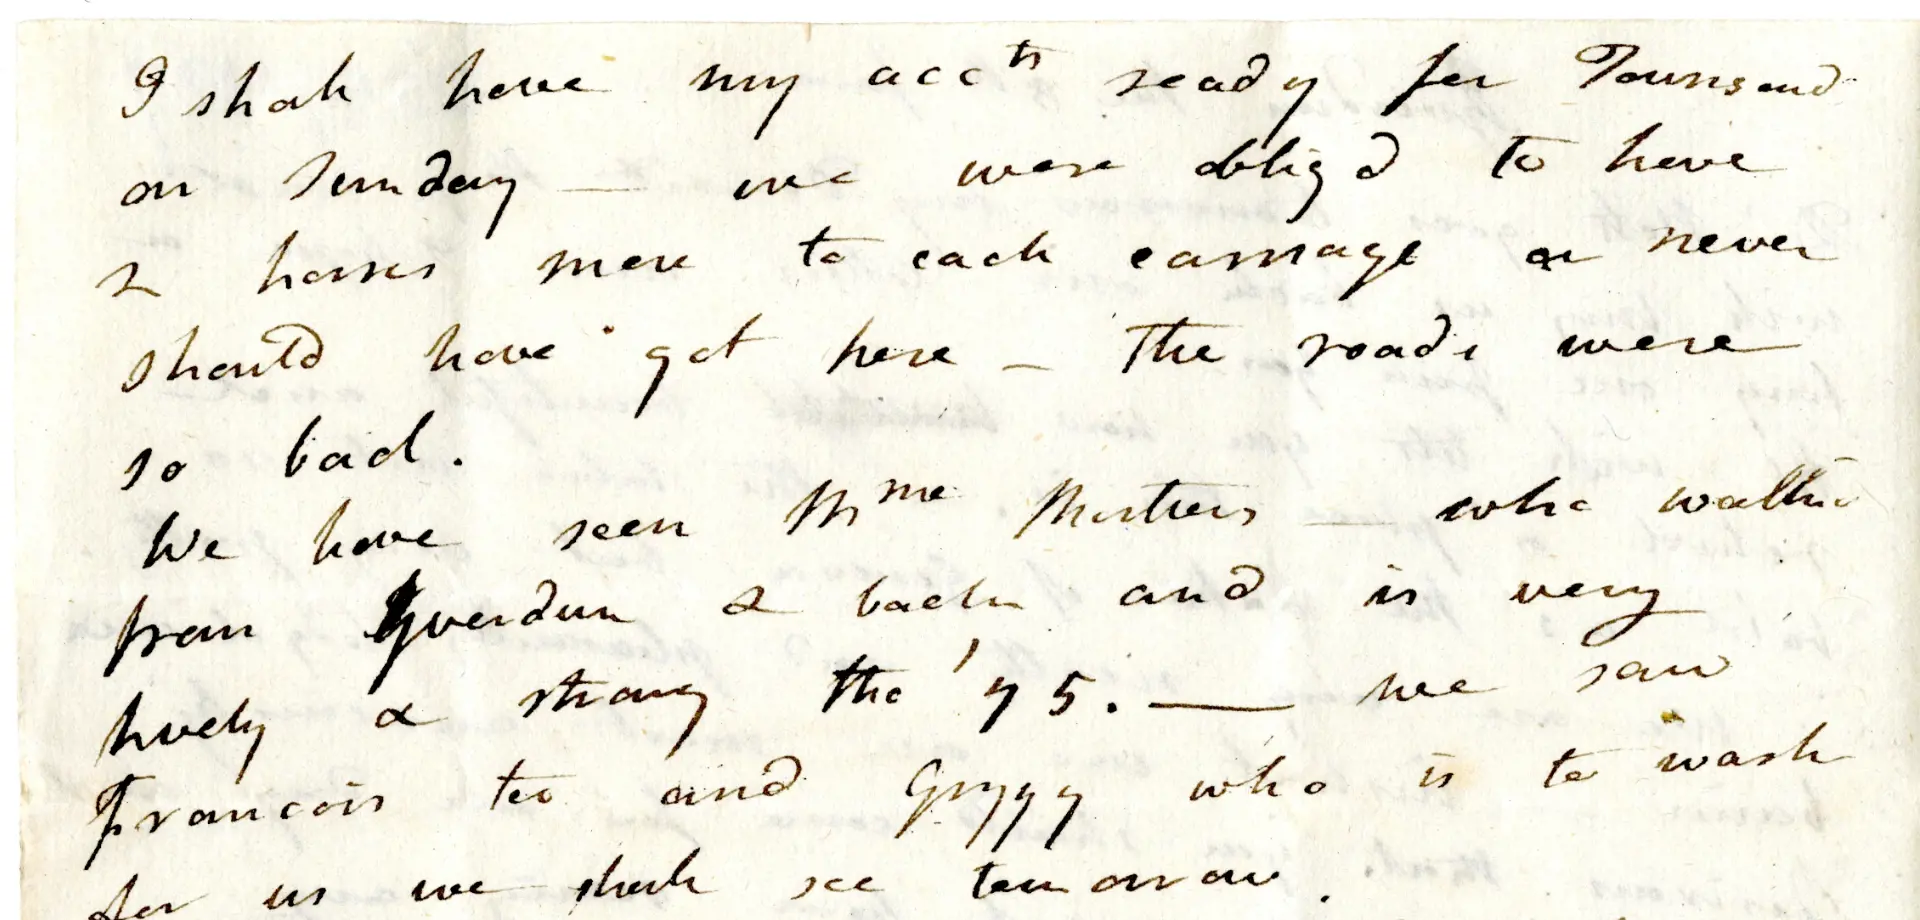 I shall have my accts ready for Townsend
on Sunday — we were oblig'd to have
2 horses more to each carriage or never
should have got here — The roads were
so bad.
We have seen Mme — who walk'd
from Yverdun & back and is very
lively & strong tho' 75. — we saw
Francois too and who is to wash
for us we shall see tomorrow.